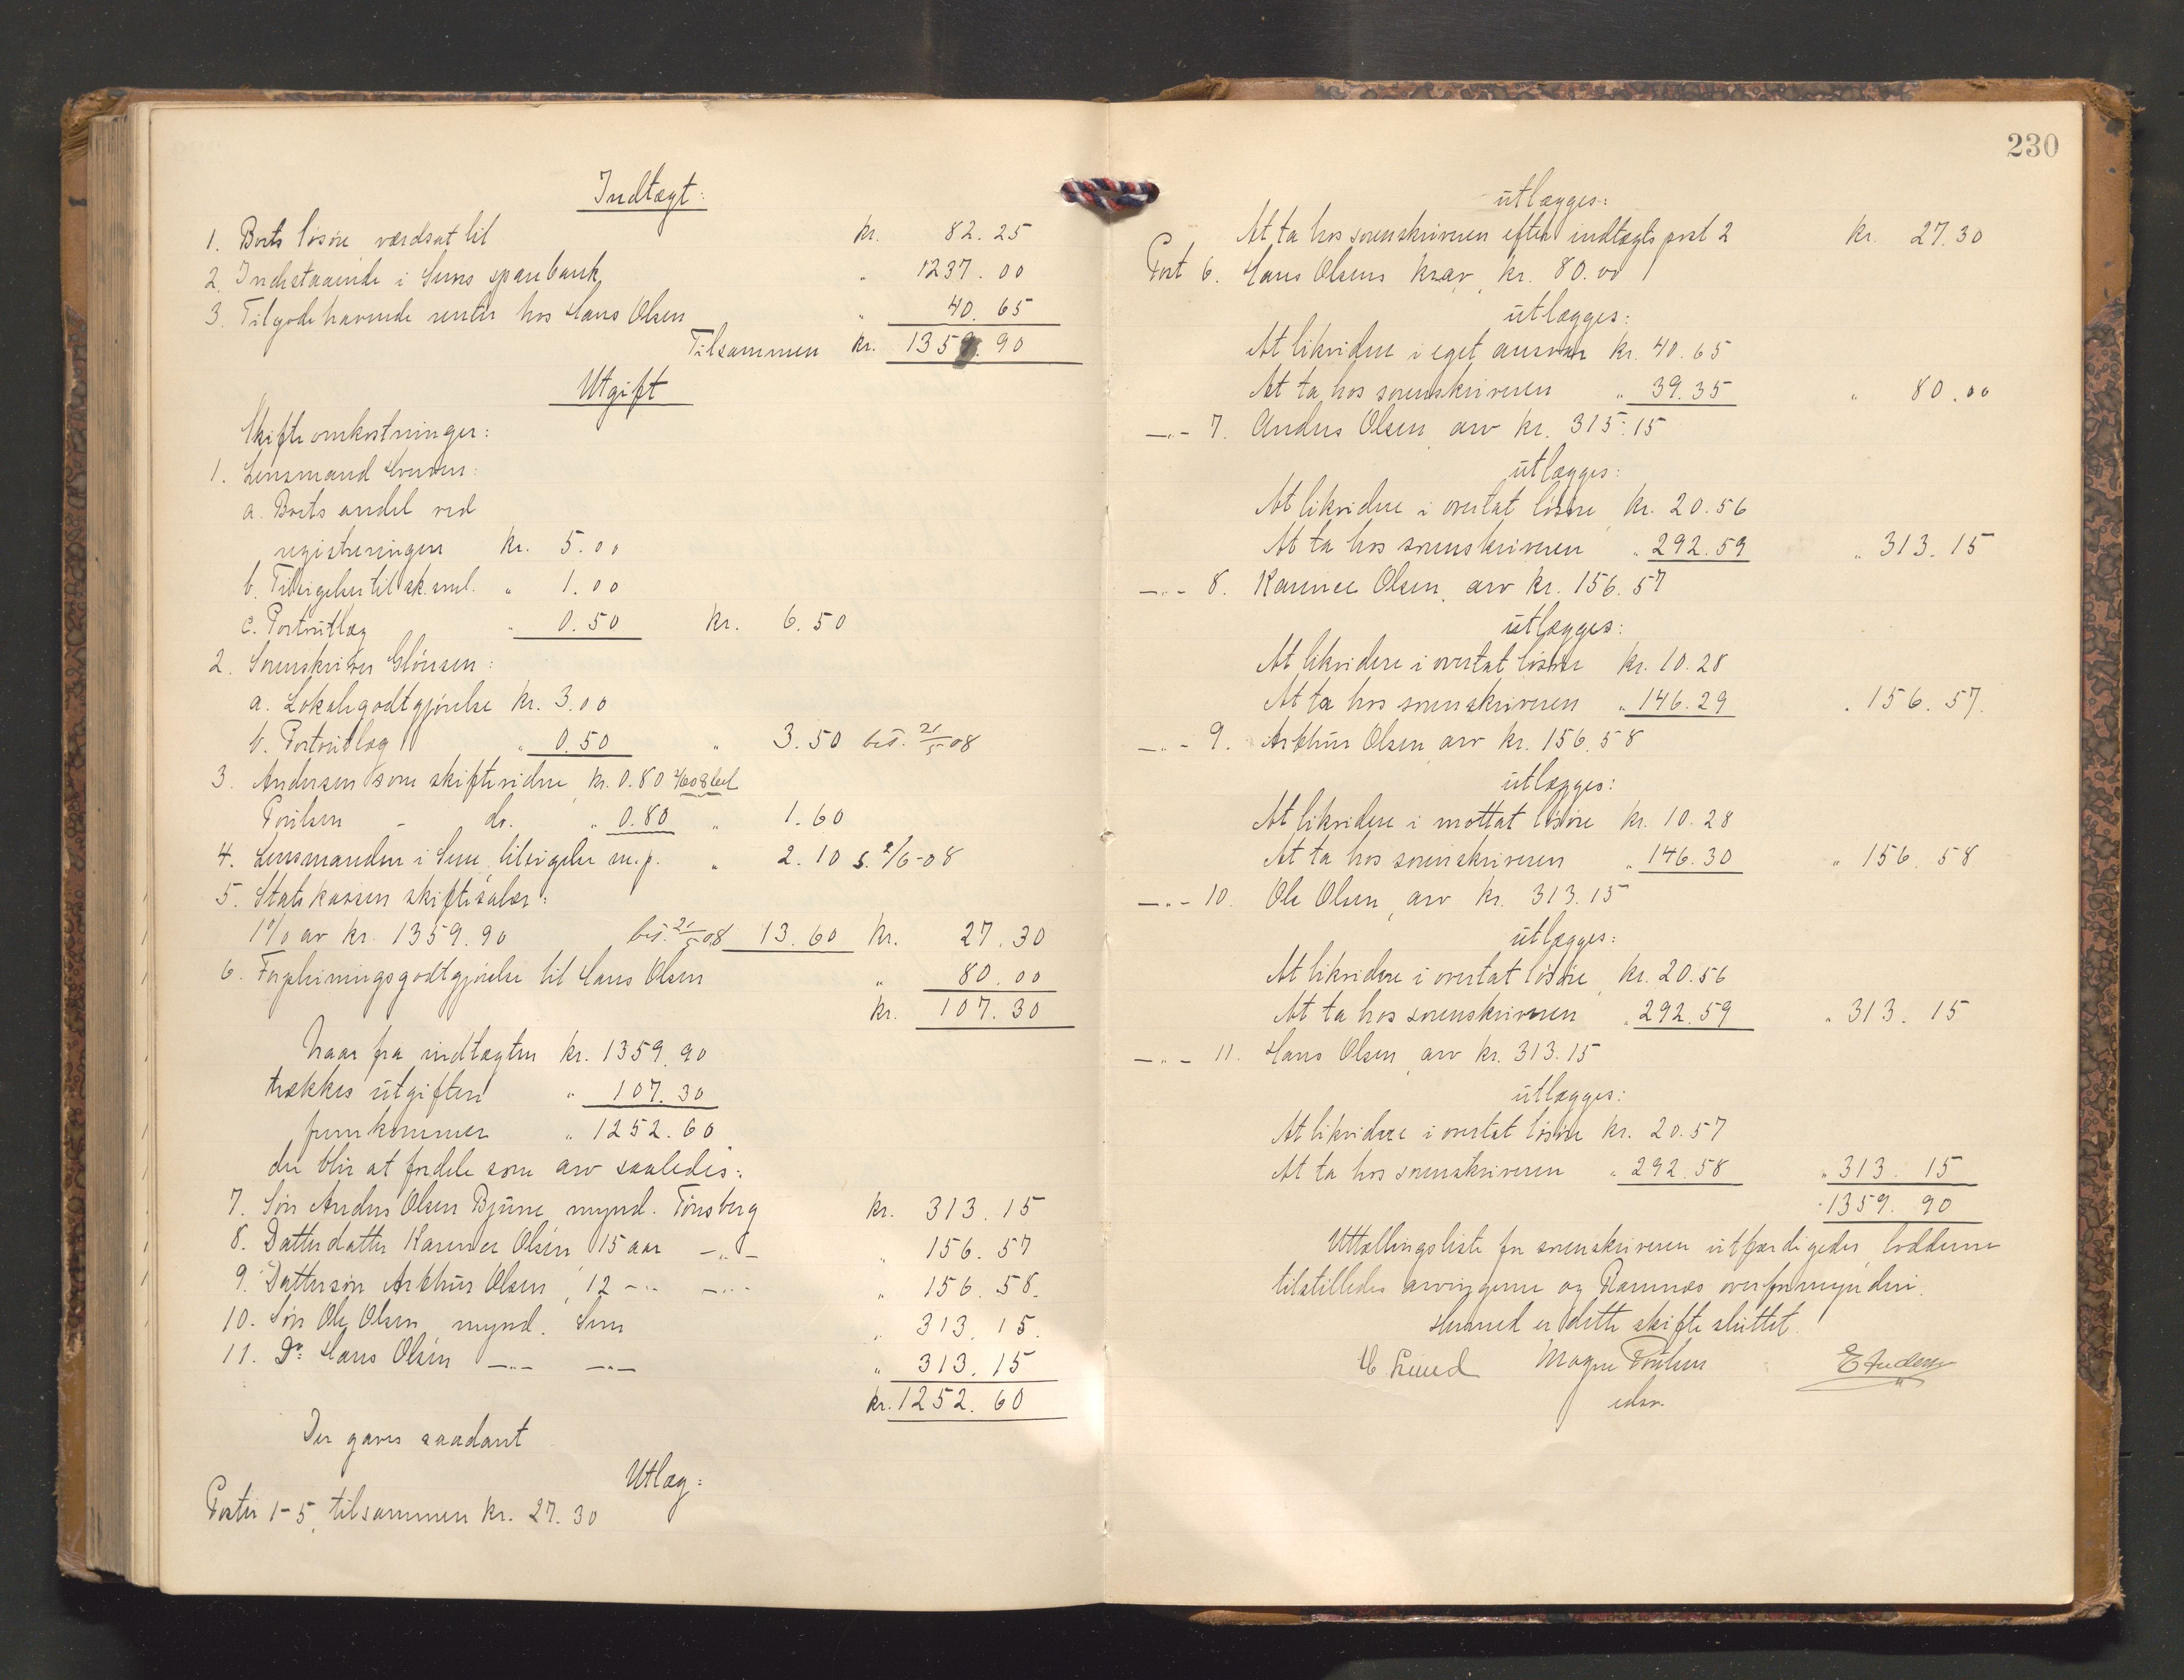 Indtægt:
1. Boets løsøre værdsat til kr. 82.25
2. Indestaaende i Sems sparebank " 1237.00
3. Tilgodehavende renter hos Hans Olsen " 40.65
Tilsammen kr. 1359.90
Utgift
Skifteomkostninger:
1. Lensmand
a. Boets andel ved
registreringen kr. 5.00
b. Tilsigelser til sk.saml. " 1.00
c. Portoutlæg " 0.50 kr. 6.50
2. Sorenskriver
a. Lokalegodtgjørelse kr. 3.00
b. Portoutlæg " 0.50 " 3.50 bet. 21/5 08
3. Andersen som skiftevidne kr. 0.80
Poulsen - do. " 0.80 " 1.60
4. Lensmanden i Sem, tilsigelse m.p. " 2.10 s. 2/6-08
5. Statskassen skiftesalær:
1% av kr. 1359.90 bet. 21/5 08 13.60 kr. 27.30
6. Forpleiningsgodtgjørelse til Hans Olsen " 80.00
kr. 107.30
Naar fra indtægten kr. 1359.90
trækkes utgiften " 107.30
fremkommer " 1252.60
der blir at fordele som arv saaledes:
7. Søn Anders Olsen Bjune, mynd. Tønsberg kr. 313.15
8. Datterdatter Karinee Olsen 15 aar -"- " 156.57
9. Dattersøn Arthur Olsen, 12 -"- -"- " 156.58.
10. Søn Ole Olsen, mynd. Sem " 313.15.
11. Do: Hans Olsen -"- -"- " 313.15
kr. 1252.60
Der gaves saadant
Utlæg:
Poster 1-5, tilsammen kr. 27.30
230
utlægges:
At ta hos sorenskriveren efter indtægts post 2 kr. 27.30
Post 6. Hans Olsens krav, kr. 80.00
utlægges:
At likvidere i eget ansvar kr. 40.65
At ta hos sorenskriveren " 39.35 " 80.00
-"- 7. Anders Olsen, arv kr. 315.15
utlægges:
At likvidere i overtat løsøre kr. 20.56
At ta hos sorenskriveren " 292.59 " 313.15
-"- 8. Karinee Olsen, arv kr. 156.57
utlægges:
At likvidere i overtat løsøre kr. 10.28
At ta hos sorenskriveren " 146.29 " 156.57.
-"- 9. Arthur Olsen, arv kr. 156.58
utlægges:
At likvidere i mottat løsøre kr. 10.28
At ta hos sorenskriveren " 146.30 " 156.58
-"- 10. Ole Olsen, arv kr. 313.15
utlægges:
At likvidere i overtat løsøre, kr. 20.56
At ta hos sorenskriveren " 292.59 " 313.15
-"- 11. Hans Olsen, arv kr. 313.15
utlægges:
At likvidere i overtat løsøre kr. 20.57
At ta hos sorenskriveren " 292.58 " 313.15
" 1359.90
Uttællingsliste for sorenskriveren utfærdigedes, lodderne
tilstilledes arvingerne og Ramnes overformynderi.
Hermed er dette skifte sluttet.
Lund Magne Poulsen E Andersen
edsv.